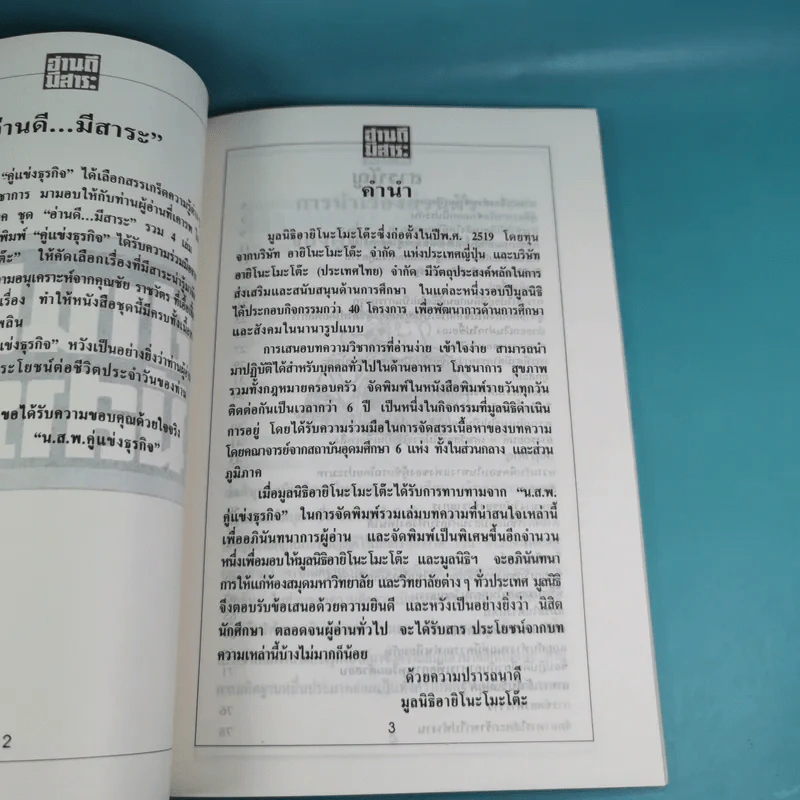 อ่านดี
มีสาระ
านดี...มีสาระ”
“คู่แข่งธุรกิจ” ได้เลือกสรรเกร็ดความรู้
ชาการ มามอบให้กับท่านผู้อ่านที่เคารพ
ชุด “อ่านดี...มีสาระ” รวม 4 เล่ม
พิมพ์ “คู่แข่งธุรกิจ” ได้รับความร่วมมือ
ให้คัดเลือกเรื่องที่มีสาระน่ารู้
ามอนุเคราะห์จากคุณชัย ราชวัตร
เรื่อง ทำให้หนังสือชุดนี้มีครบทั้ง
พลิน
แข่งธุรกิจ” หวังเป็นอย่างยิ่งว่าท่าน
ระโยชน์ต่อชีวิตประจำวันของท่าน
ขอได้รับความขอบคุณด้วยใจจริง
“น.ส.พ.คู่แข่งธุรกิจ”
2
อ่านดี
มีสาระ
คำนำ
มูลนิธิอายิโนะโมะโต๊ะซึ่งก่อตั้งในปีพ.ศ. 2519 โดยทุน
จากบริษัท อายิโนะโมะโต๊ะ จำกัด แห่งประเทศญี่ปุ่น และบริษัท
อายิโนะโมะโต๊ะ (ประเทศไทย) จำกัด มีวัตถุประสงค์หลักในการ
ส่งเสริมและสนับสนุนด้านการศึกษา ในแต่ละหนึ่งรอบปีมูลนิธิ
ได้ประกอบกิจกรรมกว่า 40 โครงการ เพื่อพัฒนาการด้านการศึกษา
และสังคมในนานารูปแบบ
การเสนอบทความวิชาการที่อ่านง่าย เข้าใจง่าย สามารถนำ
มาปฏิบัติได้สำหรับบุคคลทั่วไปในด้านอาหาร โภชนาการ สุขภาพ
รวมทั้งกฎหมายครอบครัว จัดพิมพ์ในหนังสือพิมพ์รายวันทุกวัน
ติดต่อกันเป็นเวลากว่า 6 ปี เป็นหนึ่งในกิจกรรมที่มูลนิธิดำเนิน
การอยู่ โดยได้รับความร่วมมือในการจัดสรรเนื้อหาของบทความ
โดยคณาจารย์จากสถาบันอุดมศึกษา 6 แห่ง ทั้งในส่วนกลาง และส่วน
ภูมิภาค
เมื่อมูลนิธิอายิโนะโมะโต๊ะได้รับการทาบทามจาก “น.ส.พ.
คู่แข่งธุรกิจ” ในการจัดพิมพ์รวมเล่มบทความที่น่าสนใจเหล่านี้
เพื่ออภินันทนาการผู้อ่าน และจัดพิมพ์เป็นพิเศษขึ้นอีกจำนวน
หนึ่งเพื่อมอบให้มูลนิธิอายิโนะโมะโต๊ะ และมูลนิธิฯ จะอภินันทนา
การให้แก่ห้องสมุดมหาวิทยาลัย และวิทยาลัยต่าง ๆ ทั่วประเทศ มูลนิธิ
จึงตอบรับข้อเสนอด้วยความยินดี และหวังเป็นอย่างยิ่งว่า นิสิต
นักศึกษา ตลอดจนผู้อ่านทั่วไป จะได้รับสาร ประโยชน์จากบท
ความเหล่านี้บ้างไม่มากก็น้อย
ด้วยความปรารถนาดี
มูลนิธิอายิโนะโมะโต๊ะ
3